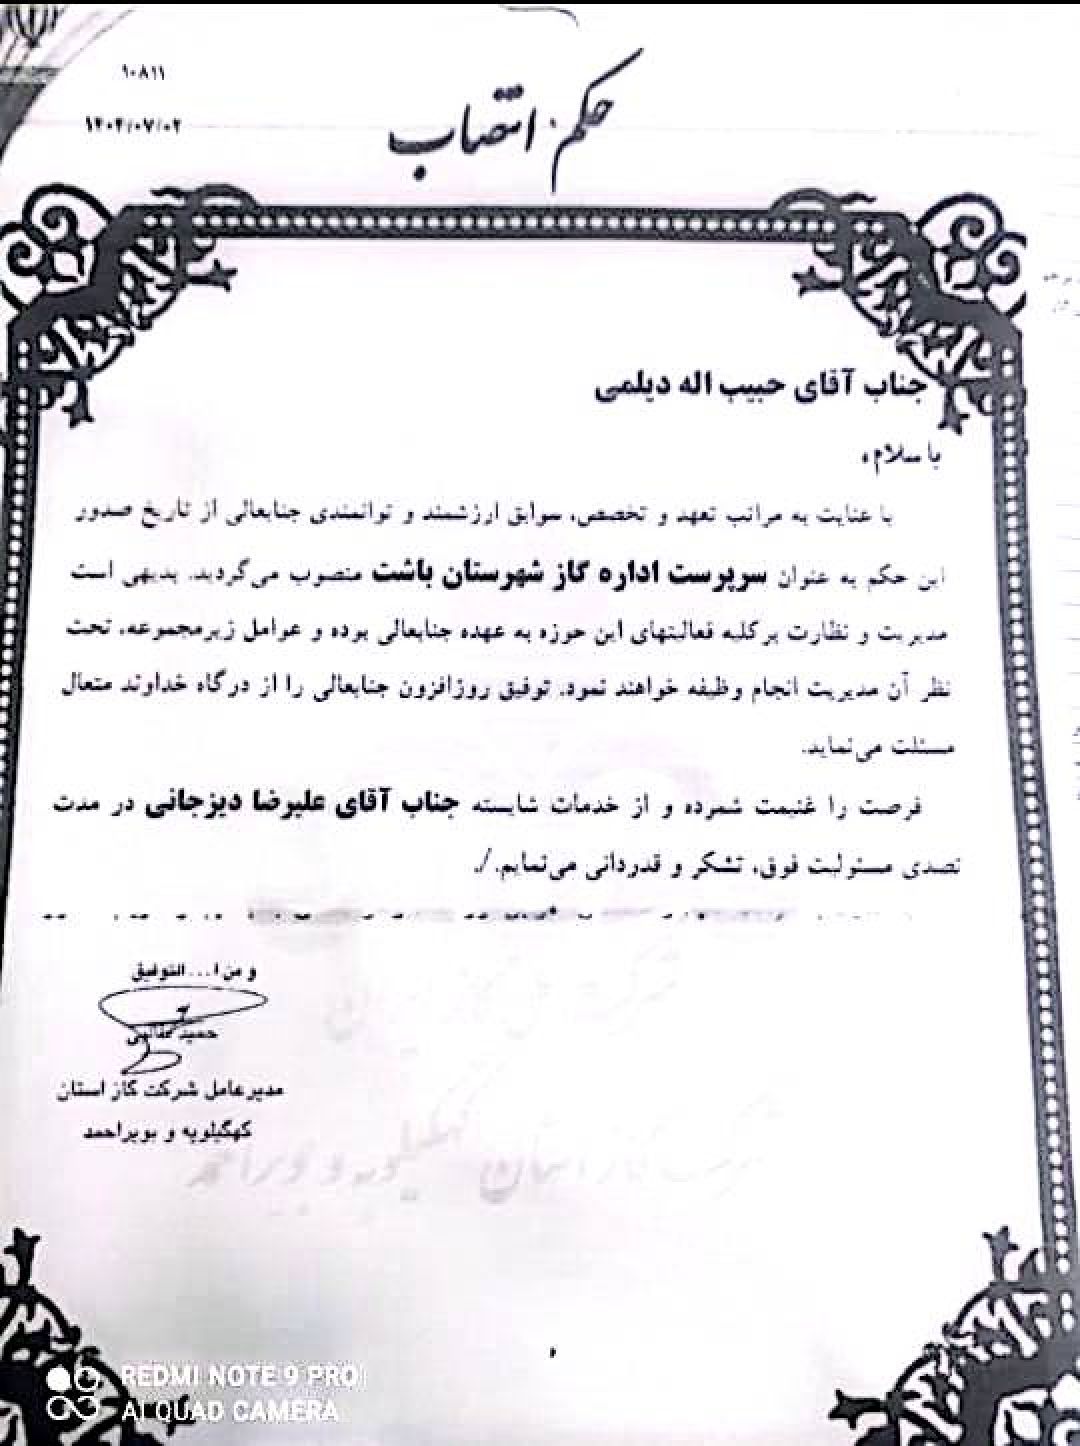 ۱۰۸۱۱
۱۴۰۴/۰۷/۰۲
حکم انتصاب
جناب آقای حبیب اله دیلمی
با سلام؛
با عنایت به مراتب تعهد و تخصص، سوابق ارزشمند و توانمندی جنابعالی از تاریخ صدور
این حکم به عنوان سرپرست اداره گاز شهرستان باشت منصوب می‌گردید. بدیهی است
مدیریت و نظارت برکلیه فعالیتهای این حوزه به عهده جنابعالی بوده و عوامل زیرمجموعه، تحت
نظر آن مدیریت انجام وظیفه خواهند نمود. توفیق روزافزون جنابعالی را از درگاه خداوند متعال
مسئلت می‌نماید.
فرصت را غنیمت شمرده و از خدمات شایسته جناب آقای علیرضا دیزجانی در مدت
تصدی مسئولیت فوق، تشکر و قدردانی می‌نمایم./.
و من ا... التوفیق
حمید
مدیرعامل شرکت گاز استان
کهگیلویه و بویراحمد
شرکت گاز استان کهگیلویه و بویراحمد
REDMI NOTE 9 PRO
AI QUAD CAMERA